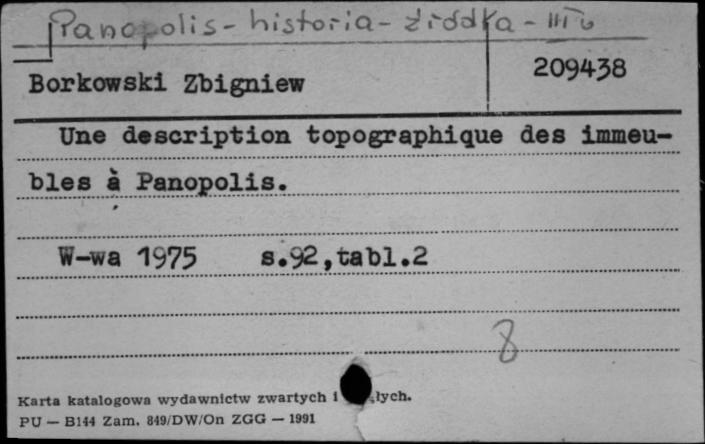 Panopolis - historia - źródła - III w
Borkowski Zbigniew
209438
Une description topographique des immeu-
bles à Panopolis.
W-wa 1975 s.92,tabl.2
8
Karta katalogowa wydawnictw zwartych i łych.
PU — B144 Zam. 849/DW/On ZGG — 1991